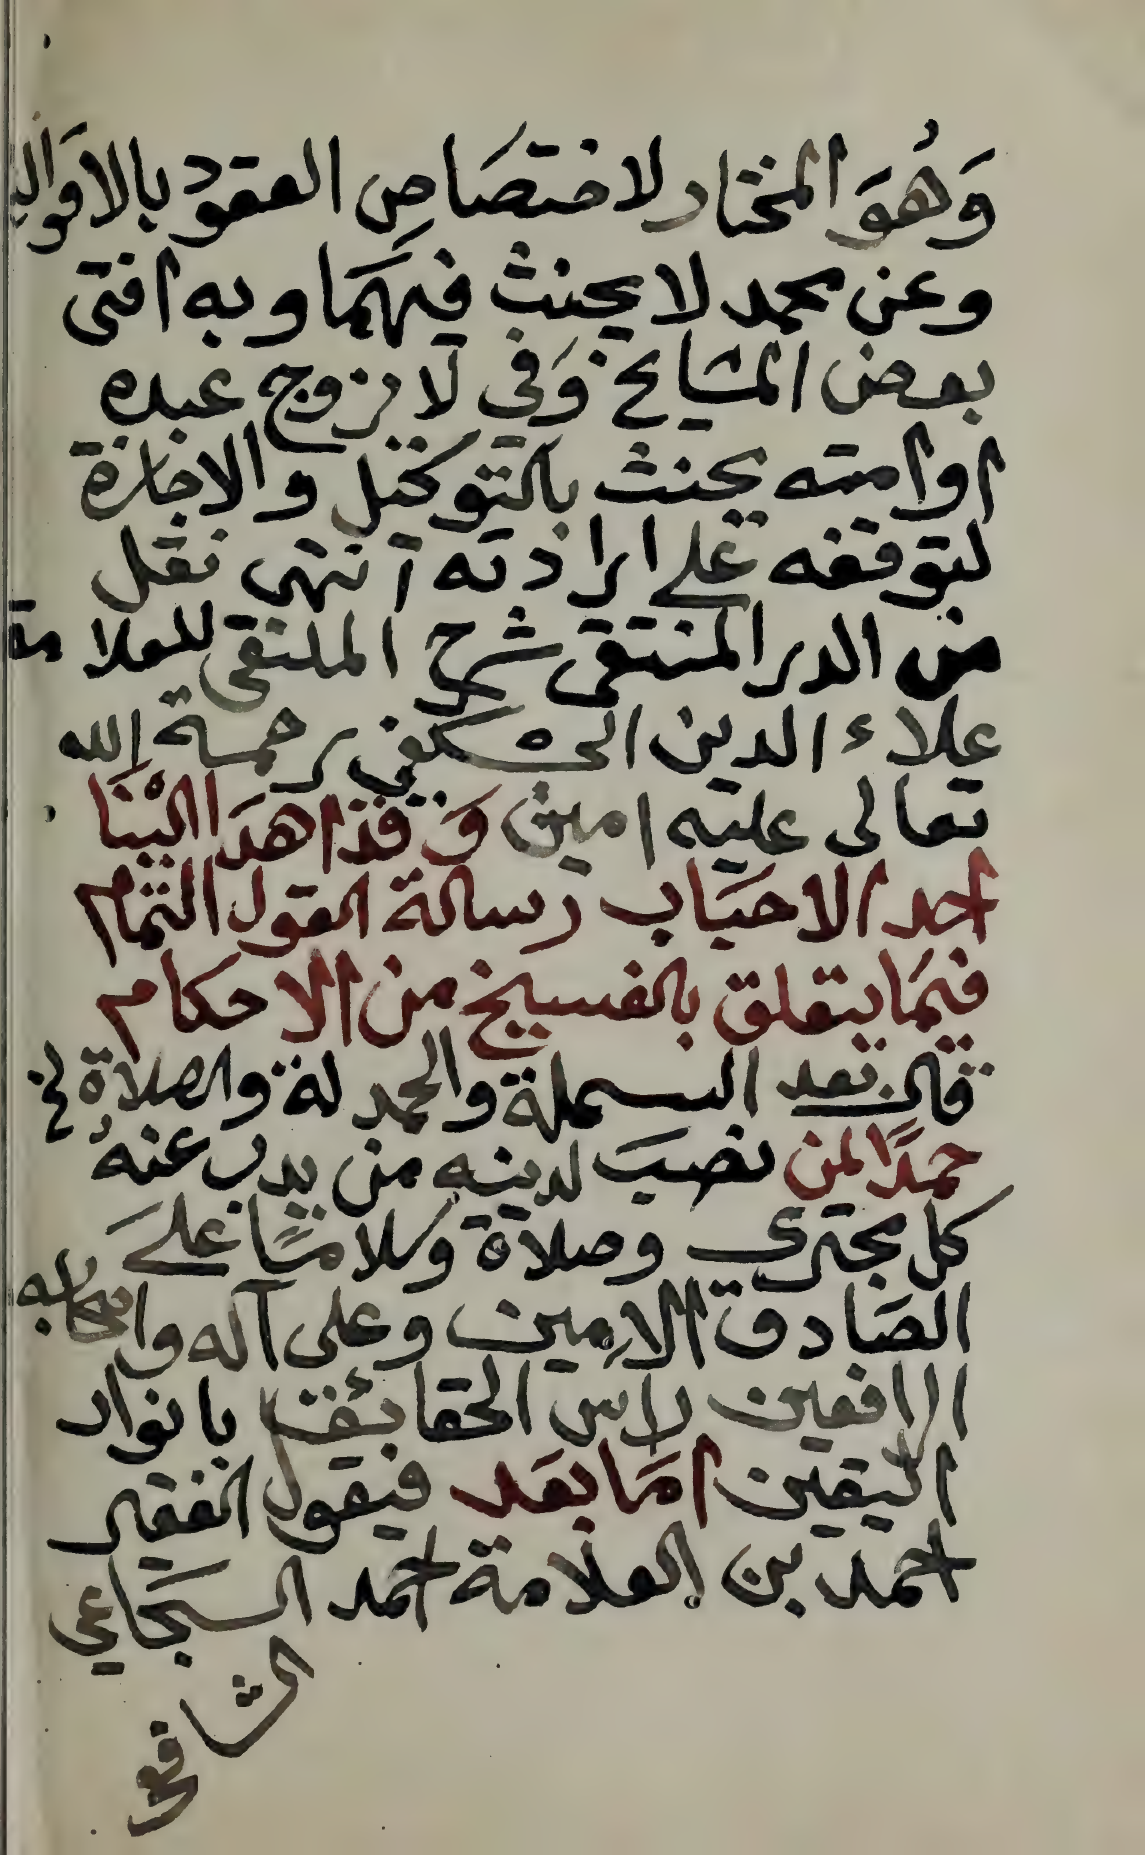 وَهُوَ المختار لاختصَاصِ العقود بالاقوال
وعن محمد لا يحنث فيهَما وبه افتى
بعض المشايخ وَفي لا يزوج عبده
او امته يحنث بالتوكيل والاجازة
لتوقفه على ارادته آنتهى نقل
من الدر المنتقى شرح الملتقى للعلامة
علاء الدين الحسكفي رحمة الله
تعالى عليه امين وَقد اهدَا الينَا
احد الاحبَاب رسالة القول التمام
فيمَا يتعلق بالفسيخ من الاحكام
قال بعد البسملة والحمد لة والصلاة الخ
حمدًا لمن نصبَ لدينه من يذب عنهُ
كل مجتري وصلاة وسلامًا علىَ
الصَادق الامين وعلى آله واصحابه
الرافعين راس الحقائق بانوار
اليقين امَا بعَد فيقول الفقير
احمد بن العلامة احمد السجَاعي
الشافعي